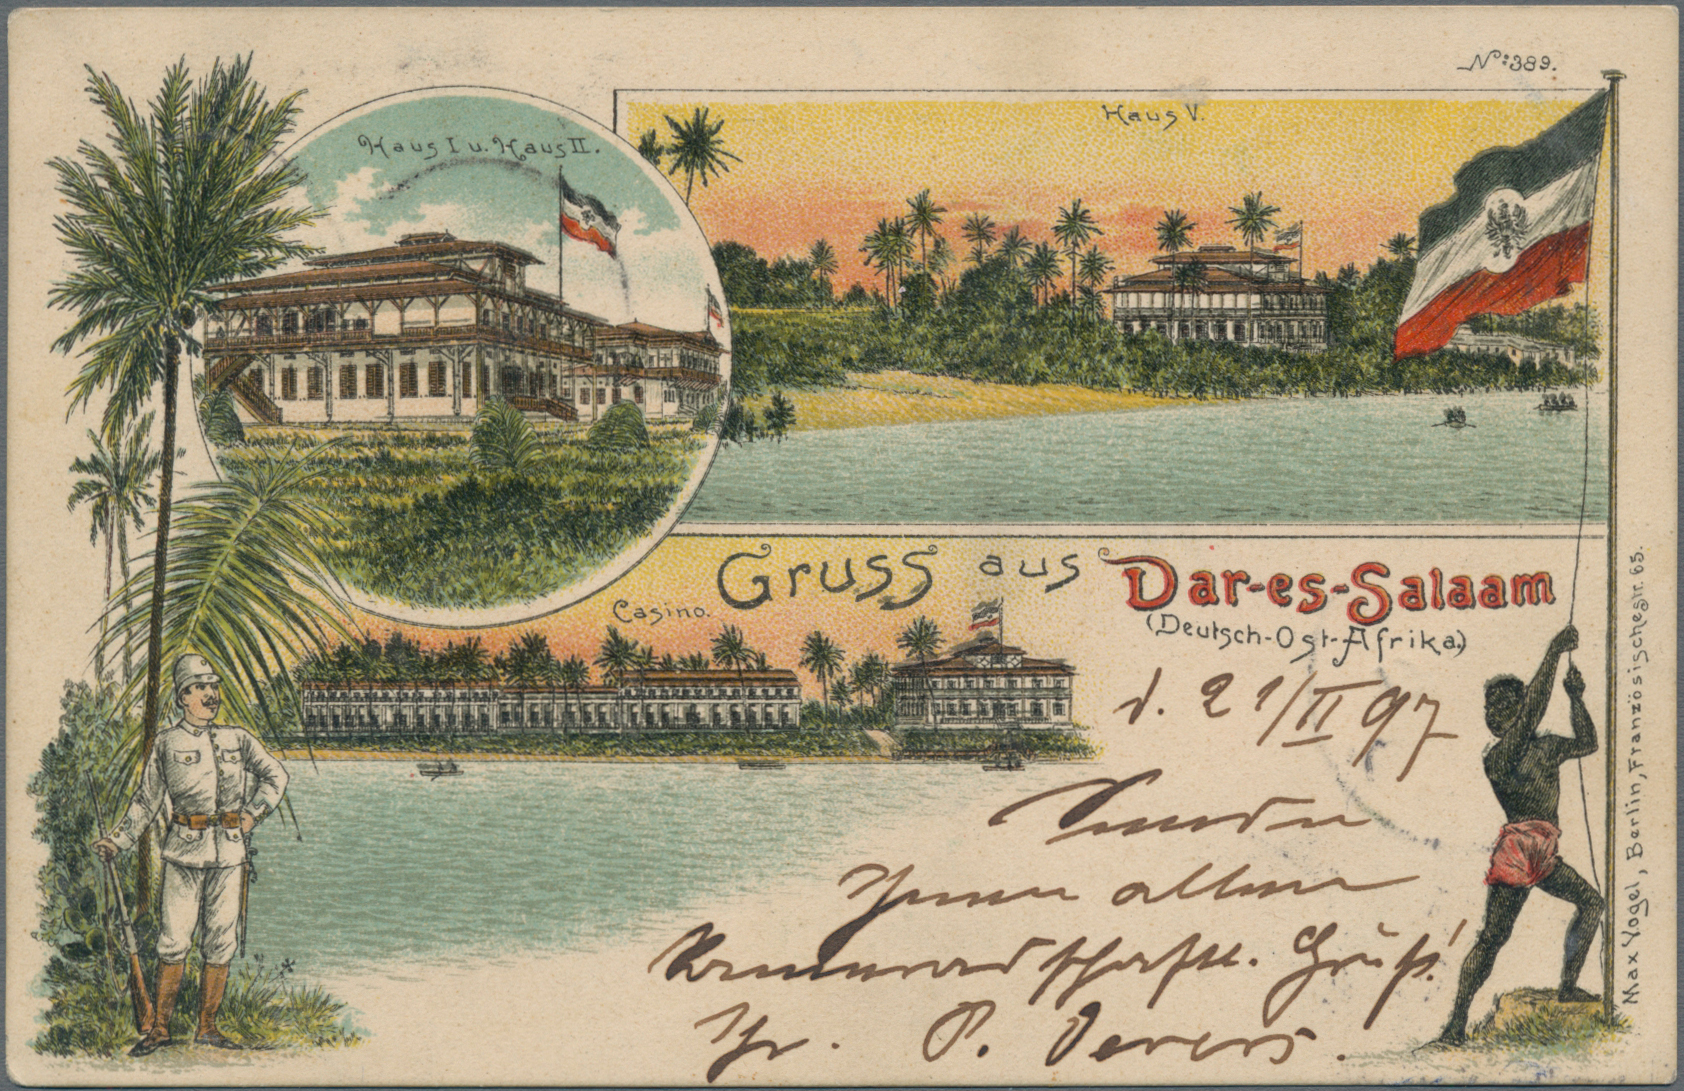 No: 389.
Haus I u. Haus II.
Haus V.
Gruss aus Dar-es-Salaam
(Deutsch-Ost-Afrika)
Casino.
d. 21/II 97
Ihnen allen
kameradschaftl. Gruß!
Ihr. P.
Max Vogel, Berlin, Französischestr. 65.